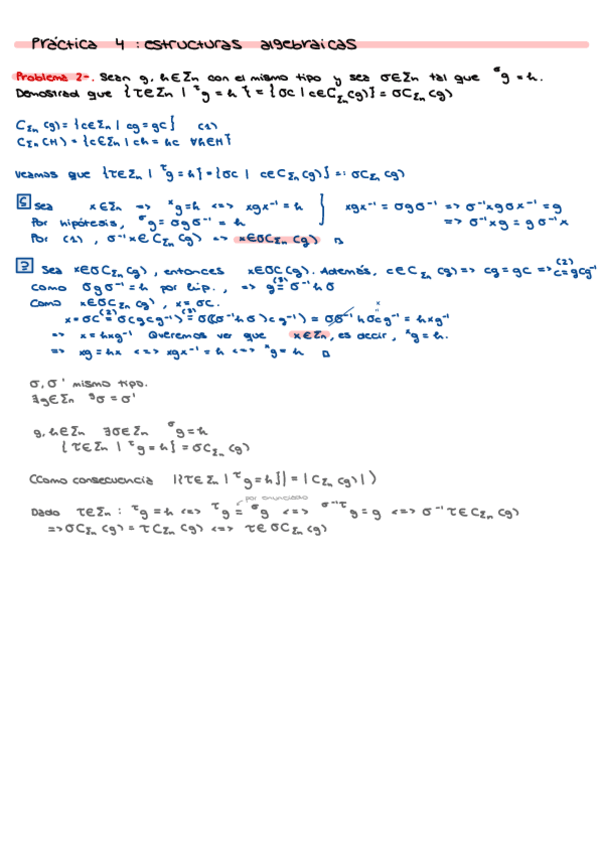 Práctica 4 : estructuras algebraicas
Problema 2-. Sean g, h∈Σn con el mismo tipo y sea σ∈Σn tal que ᵟg = h.
Demostrad que {τ∈Σn | ᵗg = h } = {σc | c∈C_Σn(g)} = σC_Σn(g)
C_Σn (g) = {c∈Σn | cg = gc} (1)
C_Σn (H) = {c∈Σn | ch = hc ∀h∈H}
Veamos que {τ∈Σn | ᵗg = h} = {σc | c∈C_Σn(g)} =: σC_Σn(g)
⊆ Sea x∈Σn => ˣg=h <=> xgx⁻¹ = h } xgx⁻¹ = σgσ⁻¹ => σ⁻¹xgσx⁻¹ = g
Por hipótesis, ᵟg = σgσ⁻¹ = h => σ⁻¹xg = gσ⁻¹x
Por (1), σ⁻¹x∈C_Σn(g) => x∈σC_Σn(g) □
⊇ Sea x∈σC_Σn(g), entonces x∈σC(g). Además, c∈C_Σn(g) => cg = gc => (2) c = gcg⁻¹
Como σgσ⁻¹ = h por hip., => g (3)= σ⁻¹hσ
Como x∈σC_Σn(g), x = σc.
x = σc (2)= σ(gcg⁻¹) (3)= σ((σ⁻¹hσ)cg⁻¹) = σσ⁻¹hσcg⁻¹ = hxg⁻¹
=> x = hxg⁻¹ Queremos ver que x∈Σn, es decir, ˣg = h.
=> xg = hx <=> xgx⁻¹ = h <=> ˣg = h □
σ, σ' mismo tipo.
∃g∈Σn ᵍσ = σ'
g, h∈Σn ∃σ∈Σn ᵟg = h
{τ∈Σn | ᵗg = h} = σC_Σn(g)
(Como consecuencia |{τ∈Σn | ᵗg = h}| = |C_Σn(g)|)
por enunciado
Dado τ∈Σn : ᵗg = h <=> ᵗg = ᵟg <=> σ⁻¹τg = g <=> σ⁻¹τ∈C_Σn(g)
=> σC_Σn(g) = τC_Σn(g) <=> τ∈σC_Σn(g)